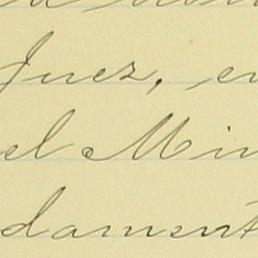 Juez, en
el Min
dament